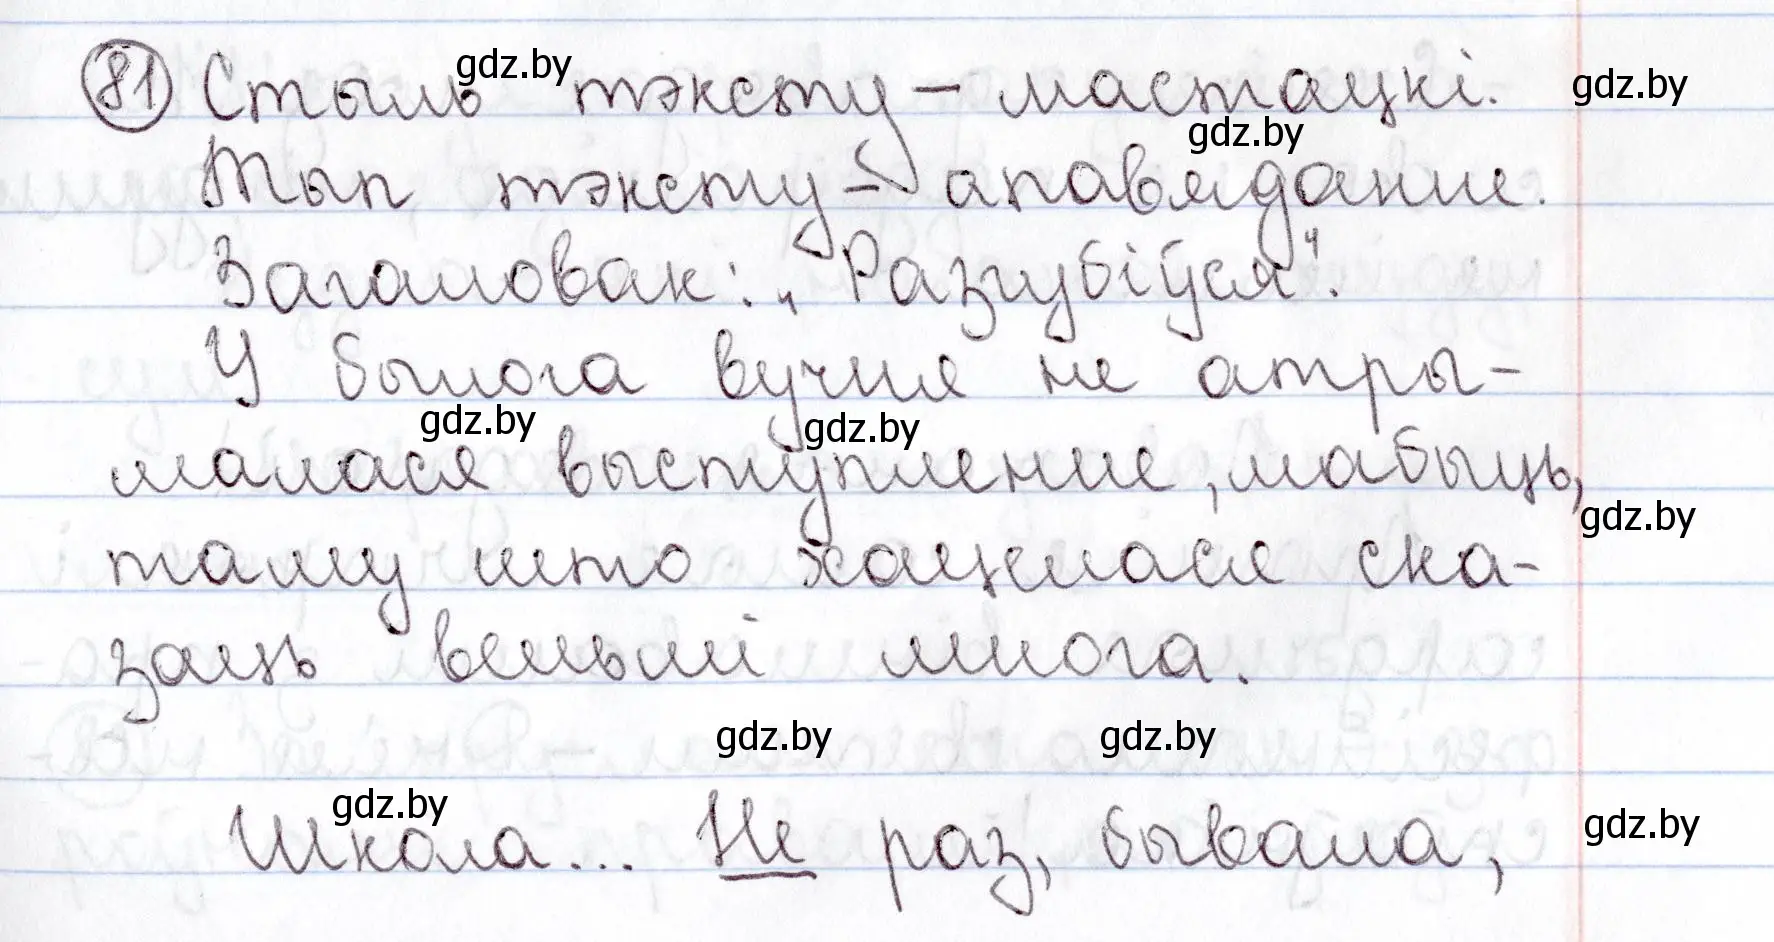 81 Стыль тэксту – мастацкі.
Тып тэксту – апавяданне.
Загаловак: „Разгубіўся".
У былога вучня не атры-
малася выступленне, мабыць,
таму што хацелася ска-
заць вельмі многа.
Школа... Не раз, бывала,
gdz.by
gdz.by
gdz.by
gdz.by
gdz.by
gdz.by
gdz.by
gdz.by
gdz.by
gdz.by